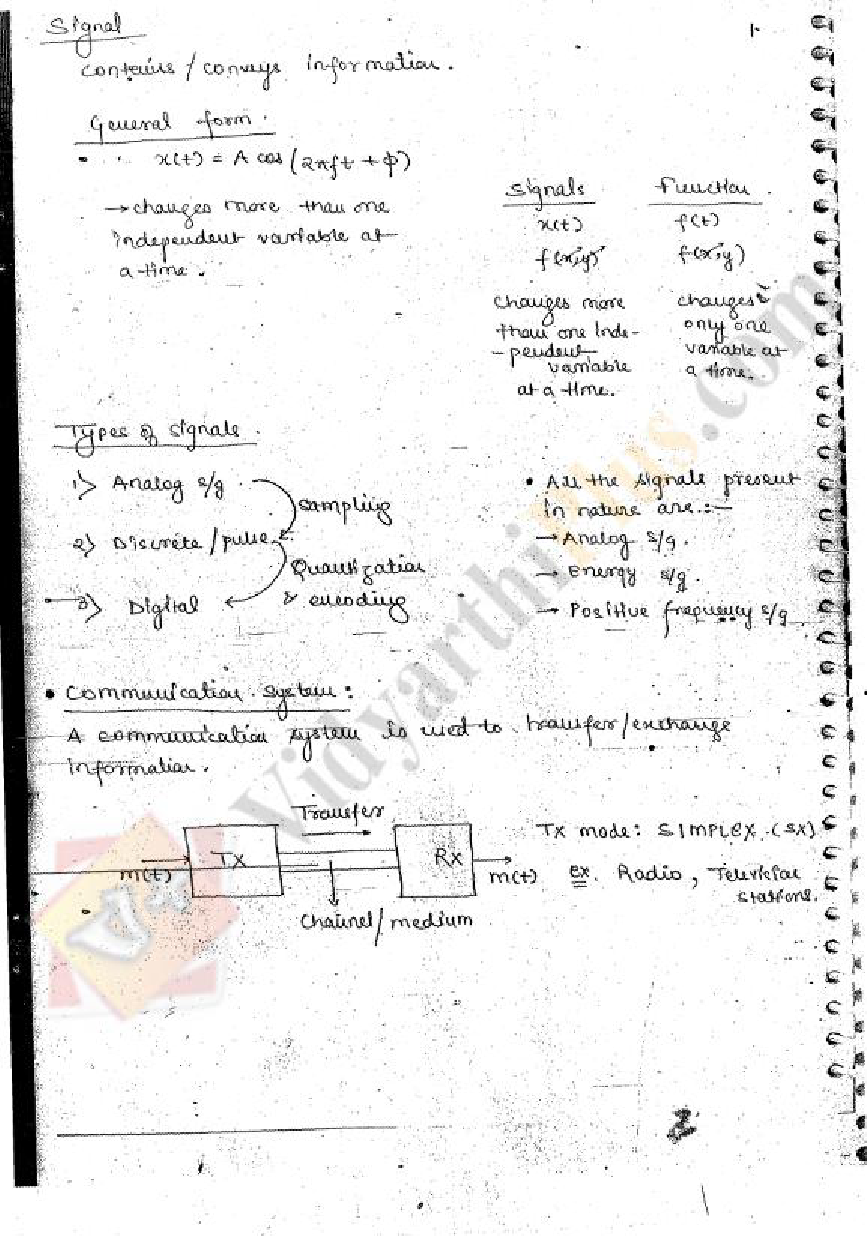 Signal
1.
contains / conveys information.
General form.
x(t) = A cos (2πft + φ)
→ changes more than one
independent variable at
a time.
Signals Function
x(t) f(t)
f(x,y) f(x,y)
changes more
than one inde-
-pendent
variable
at a time.
changes
only one
variable at
a time.
Types of signals.
1) Analog s/g.
sampling
2) Discrete / pulse
Quantization
& encoding
→ 3) Digital
• All the signals present
in nature are :-
→ Analog s/g.
→ energy s/g.
→ Positive frequency s/g.
• Communication system :
A communication system is used to transfer/exchange
information.
Transfer
m(t) TX Rx m(t)
Channel / medium
Tx mode: SIMPLEX (SX)
ex. Radio, Television
stations.
2
VidyarthiPlus.com
V+